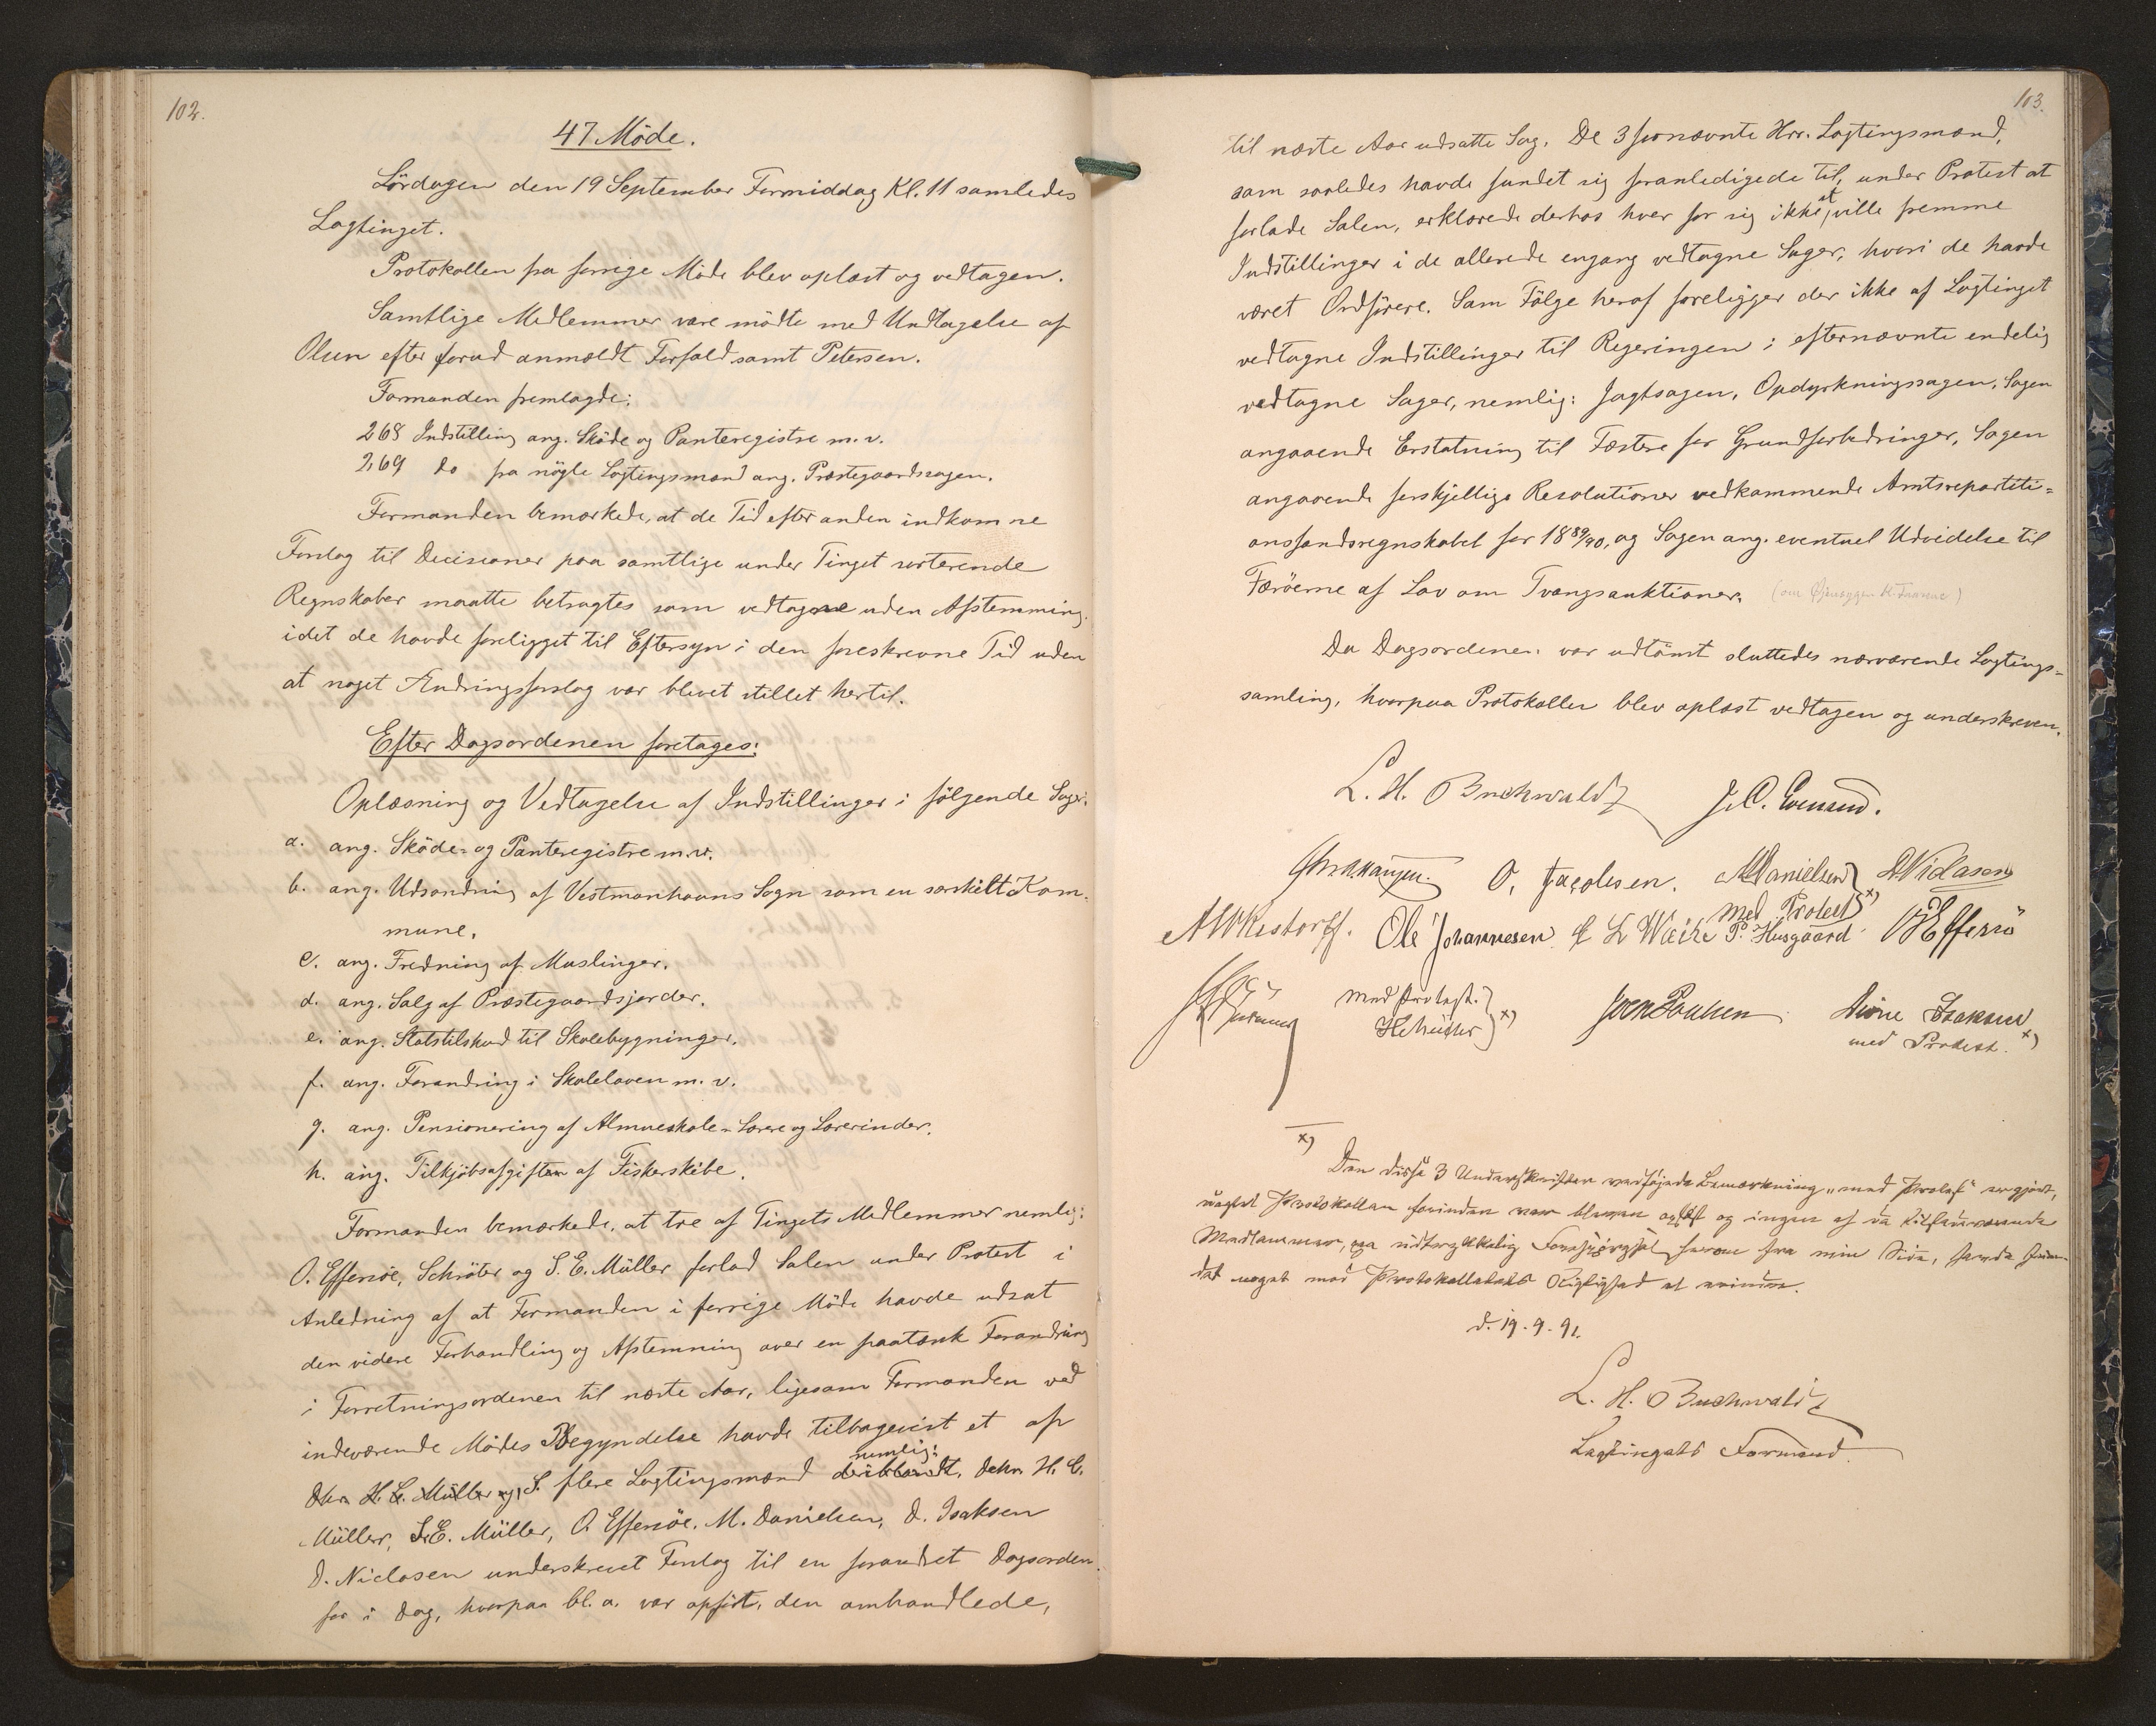 102.
47 Möde.
Lördagen den 19 September Formiddag Kl. 11 samledes
Lagtinget.
Protokollen fra forrige Möde blev oplæst og vedtagen.
Samtlige Medlemmer vare mödte med Undtagelse af
Olsen efter forud anmeldt Forfald samt Petersen.
Formanden fremlagde:
268 Indstilling ang. Sköde og Panteregistre m. v.
269 do fra nögle Lagtingsmænd ang. Præstegaardssagen.
Formanden bemærkede, at de Tid efter anden indkomne
Forslag til Decisioner paa samtlige under Tinget sorterende
Regnskaber maatte betragtes som vedtagne uden Afstemming.
idet de havde foreligget til Eftersyn i den foreskrevne Tid uden
at noget Ændringsforslag var blevet stillet hertil.
Efter Dagsordenen foretages:
Oplæsning og Vedtagelse af Indstillinger i følgende Sager:
a. ang. Sköde- og Panteregistre m.v.
b. ang. Udsondring af Vestmanhavns Sogn som en særskilt Kom-
mune.
c. ang. Fredning af Muslinger.
d. ang. Salg af Præstegaardsjorder.
e. ang. Statstilskud til Skolebygninger.
f. ang. Forandring i Skoleloven m. v.
g. ang. Pensionering af Almueskole-Lærere og Lærerinder.
h. ang. Tilkjöbsafgiften af Fiskerskibe.
Formanden bemærkede, at tre af Tingets Medlemmer nemlig:
O. Effersöe, Schröter og S. E. Müller forlod Salen under Protest i
Anledning af at Formanden i forrige Möde havde udsat
den videre Forhandling og Afstemning over en paatænk Forandring
i Forretningsordenen til næste Aar, ligesom Formanden ved
indeværende Mödes Begyndelse havde tilbagevist et af
dHrr. H. C. Müller og S. flere Lagtingsmænd deriblandt, nemlig: dHrr. H. C.
Müller, S. E. Müller, O. Effersöe. M. Danielsen, D. Isaksen
D. Niclasen underskrevet Forslag til en forandret Dagsorden
for i Dag, hvorpaa bl. a. var opfört, den omhandlede,
103.
til næste Aar udsatte Sag. De 3 fornævnte Hrr. Lagtingsmænd,
som saaledes havde fundet sig foranledigede til, under Protest at
forlade Salen, erklærede derhos hver for sig ikke at ville fremme
Indstillinger i de allerede engang vedtagne Sager, hvori de havde
været Ordförere. Som Fölge heraf foreligger der ikke af Lagtinget
vedtagne Indstillinger til Regeringen i efternævnte endelig
vedtagne Sager, nemlig: Jagtsagen, Opdyrkningssagen, Sagen
angaaende Erstatning til Fæstere for Grundforbedringer, Sagen
angaaende forskjellige Resolutioner vedkommende Amtsrepartiti-
onsfondsregnskabet for 1889/90, og Sagen ang. eventuel Udvidelse til
Færöerne af Lov om Tvangsauktioner.
Da Dagsordenen var udtömt sluttedes nærværende Lagtings-
samling, hvorpaa Protokollen blev oplæst vedtagen og underskreven.
L. H. Buchwaldt
O. Jacobsen. M Danielsen D Niclasen
med Protest x)
Ole Johannesen P. Husgaard O Effersö
med Protest. x)
Joen Poulsen Isaksen
med Protest. x)
x) Den disse 3 Underskrifter vedföjede Bemærkning "med Protest" er gjort,
uagtet Protokollen forinden var bleven oplæst og ingen af de tilstedeværende
Medlemmer, paa udtrykkelig Forespörgsel herom fra min Side, havde fun-
det noget mod Protokollatets Rigtighed at erindre.
d. 19. 9. 91.
L. H. Buchwaldt
Lagtingets Formand.